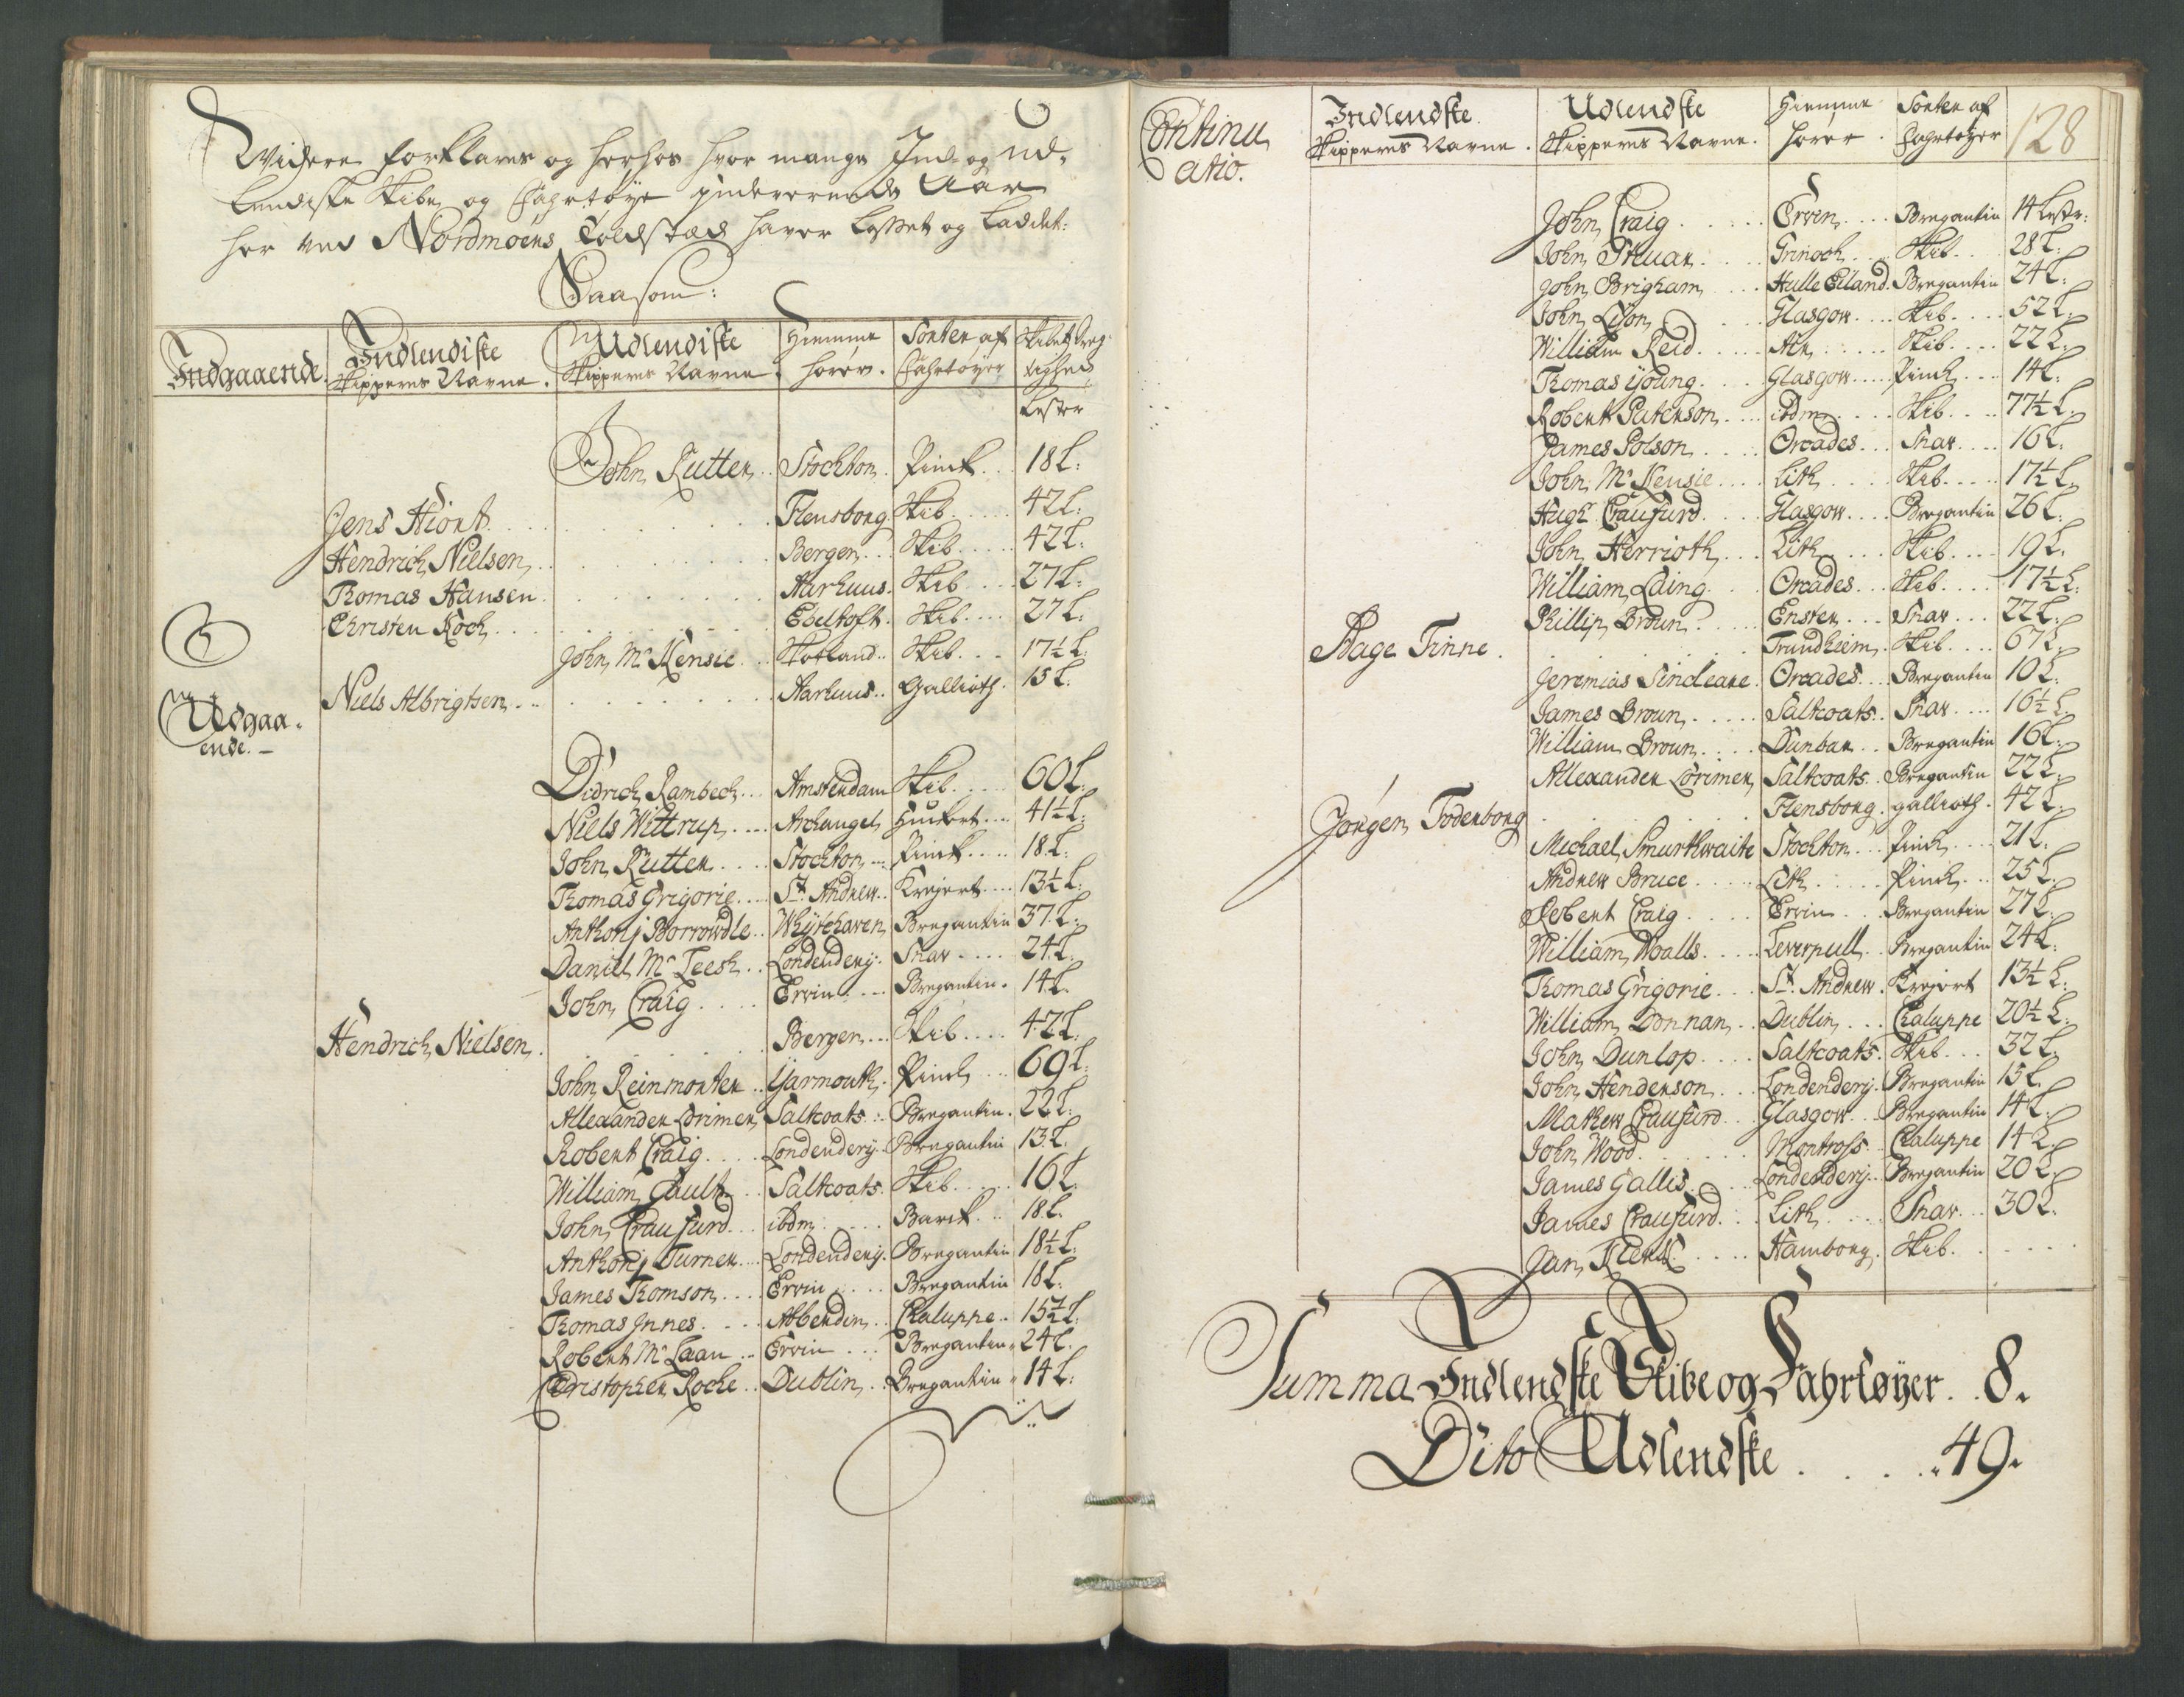 Widere forklares og herhos hvor mange Ind- og ud-
lendiske Skibe og Fahrtøye inderværende Aar
her ved Nordmøers Toldsted haver Losset og Laddet:
Saasom:
Indgaaende. Indlendiske Skippernes Navne. Udlendiske Skippernes Navne. Hiemme hører. Sorter af Fahrtøyer Skibets Dreg-tighed
Lester
John Rutter .. Stockton. Pinck .. 18 L:
Jens Hiort ... Flensborg Skib .... 42 L:
Hendrich Nielsen ... Bergen ... Skib .... 42 L:
Thomas Hansen ... Aarhuus. Skib .... 27 L:
Christen Koch ... Ebeltoft. Skib .... 27 L:
John Mc Kensie .. Skotland .. Skib ... 17½ L:
og
Niels Albrigtsen ... Aarhuus .. Gallioth. 15 L:
Udgaa-
ende. —
Didrich Rambech ... Amsterdam Skib .... 60 L:
Niels Wittrup .... Archangel Huckert ... 41½ L:
John Rutter .... Stockton ... Pinck .... 18 L:
Thomas Grigorie .... St. Andrew .. Krejert .... 13½ L:
Anthonj Borrowdle .. Whytehaven Bregantin 37. L:
Daniel Mc Leesh .. Londenderj. Snav .... 24 L:
John Craig .... Ervin .... Bregantin. 14 L.
Hendrich Nielsen. Bergen ... Skib .... 42 L:
John Reinmorter .. Yarmouth. Pinch ... 69 L:
Allexander Lorimer, Saltcoats .. Bregantin. 22 L:
Robert Craig .... Londenderij. Bregantin 13. L.
William Gault ... Saltcoats. Skib .... 16 L.
John Craufurd .. ibdm .... Barck .. 18 L.
Anthonj Turner ... Londenderij. Bregantin 18½ L:
James Thomson .... Ervin .... Bregantin 18 L:
Thomas Innes .... Abberdin .. Chaluppe .. 15½ L:
Robert Mc Laan .. Ervin ... Bregantin. 24 L.
Christopher Roche .. Dublin .. Bregantin. 14 L:
Continu
atio.
Indlendske Skippernes Navne. Udlendske Skippernes Navne. Hiemme hører. Sorter af Fahrtøyer 128
John Craig ..... Erven .... Bregantin 14 Lestr:
John Stuar .... Grinoch ... Skib ... 28 L:
John Brigham ... Hulle Eiland. Bregantin 24 L:
John Lyon ... Glasgow .... Skib .... 52 L:
William Reid ..... Air .... Skib .... 22 L:
Thomas Young .... Glasgow .... Pinck ... 14 L:
Robert Paterson .... ibdm .... Skib .... 77½ L.
James Polson .... Orcades ... Snav .... 16 L.
John Mc Kensie .... Lith .... Skib .... 17½ L.
Hugh Craufurd .... Glasgow .... Bregantin 26 L.
John Herrioth ... Lith .... Skib .... 19 L.
William Laing ... Orcades ... Skib .... 17½ L.
Phillip Broun .... Enster ... Snav ... 22 L.
Aage Finne. Trundhiem. Skib .... 67 L.
Jeremias Sincleare. Orcades ... Bregantin 10 L.
James Broun ..... Saltcoats .. Snav .... 16½ L.
William Broun .... Dunbar .. Bregantin 16 L.
Allexander Lorimer, Saltcoats .. Bregantin 22 L.
Jørgen Todenborg Flensborg. gallioth. 42 L.
Michael Smurthwaite Stockton ... Pinck .... 21 L.
Andrew Bruce ..... Lith .... Pinck ... 25 L.
Robert Craig .... Ervin ... Bregantin 27 L.
William Walls .... Leverpull .. Bregantin 24 L.
Thomas Grigorie ... St. Andrew. Krejert 13½ L.
William Donnan ... Dublin ... Chaluppe 20½ L.
John Dunlop .... Saltcoats. Skib ... 32 L.
John Henderson ... Londenderij. Bregantin 15 L.
Mathew Craufurd .. Glasgow .. Bregantin 14 L.
John Wood ..... Montross .. Chaluppe 14 L.
James Gallis .... Londenderij .. Bregantin 20 L.
James Craufurd ... Lith .... Snav .. 30 L.
Jan ..... Hamborg. Skib. ....
Summa Indlendske Skibe og Fahrtøyer. 8.
Dito Udlendske ..... 49.